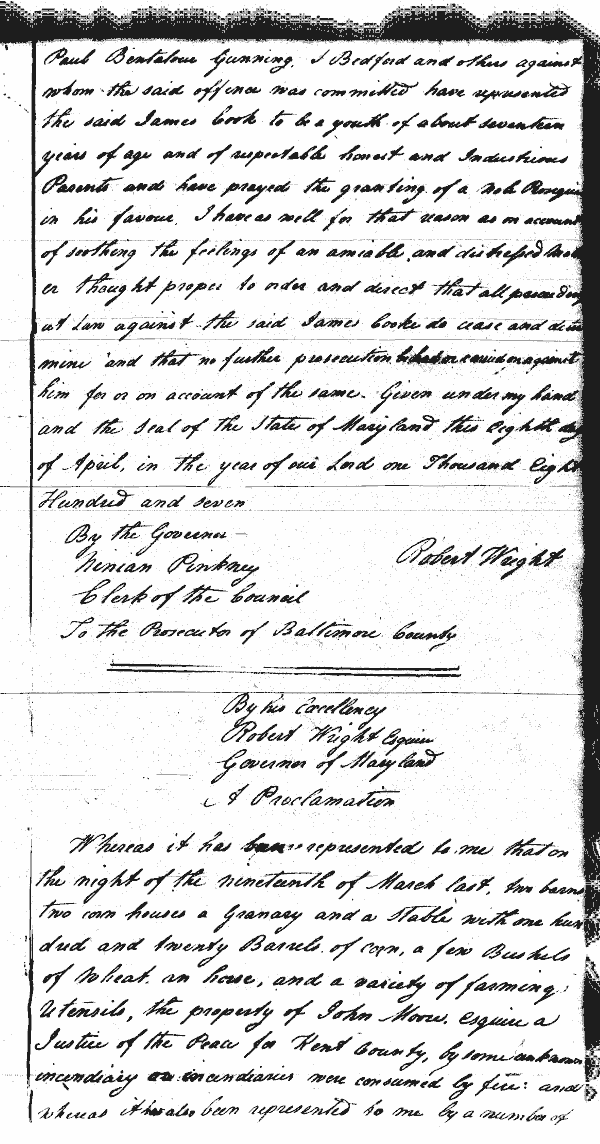 Paul Bentalour Gunning. I Bedford and others against
whom the said offence was committed have represented
the said James Cook to be a youth of about seventeen
years of age and of respectable honest and Industrious
Parents and have prayed the granting of a Nole Prosequi
in his favour. I have as well for that reason as on account
of soothing the feelings of an amiable and distressed Moth
er thought proper to order and direct that all proceeding
at Law against the said James Cooke do cease and deter
mine and that no further prosecution be had or carried on against
him for or on account of the same. Given under my hand
and the Seal of the State of Maryland this Eighth day
of April, in the year of our Lord one Thousand Eight
Hundred and seven
By the Governor
Ninian Pinkney Robert Wright
Clerk of the Council
To the Prosecutor of Baltimore County
By his Excellency
Robert Wright Esquire
Governor of Maryland
A Proclamation
Whereas it has been represented to me that on
the night of the nineteenth of March last, two barns
two corn houses a Granary and a Stable with one hun
dred and twenty Barrels of corn, a few Bushels
of Wheat. an horse, and a variety of farming
Utensils, the property of John Moore. Esquire a
Justice of the Peace for Kent County, by some unknown
incendiary or incendiaries were consumed by fire: and
whereas it has also been represented to me by a number of